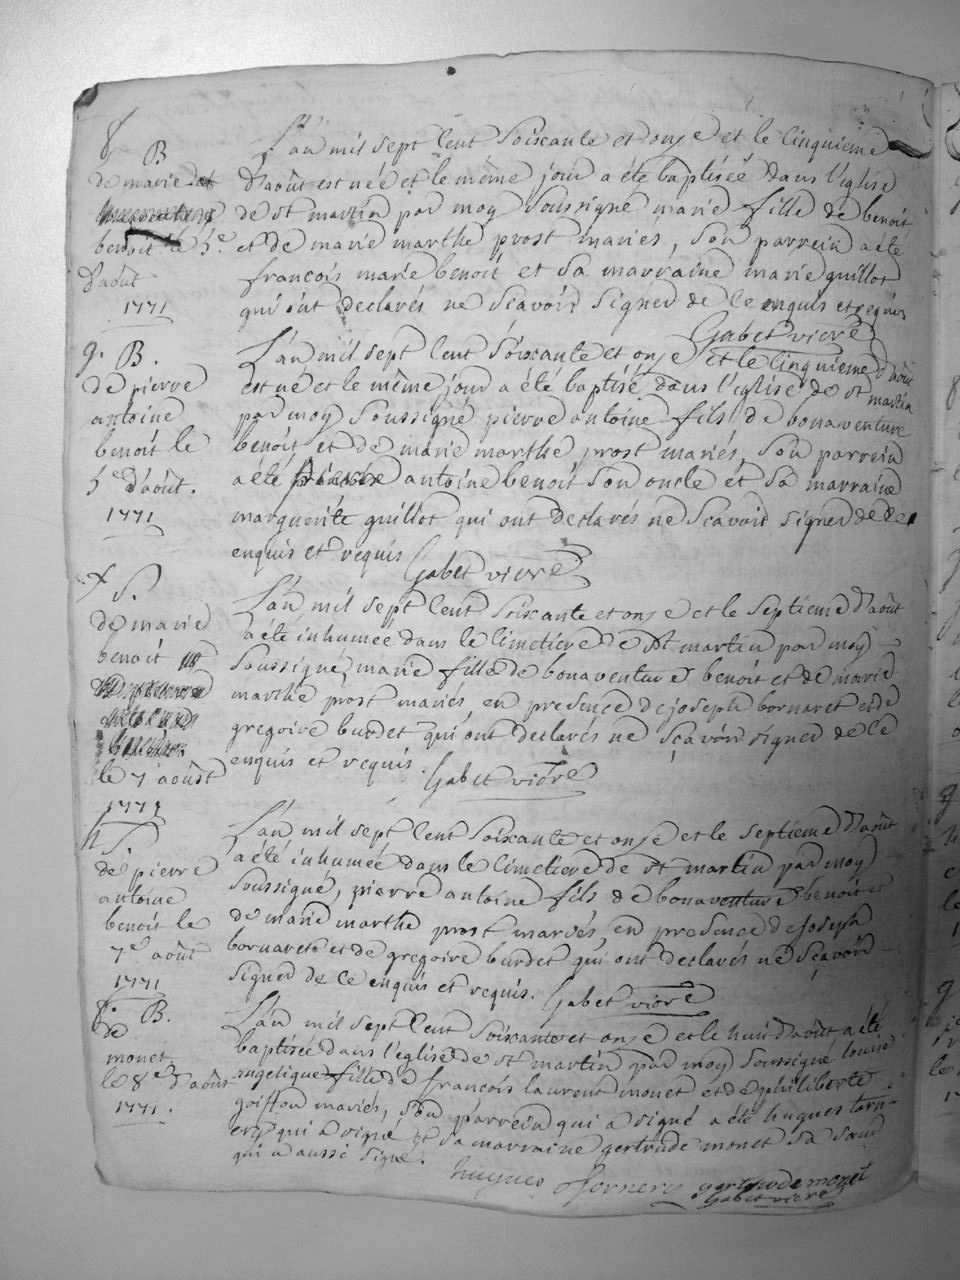 f. B
de marie et
benoit le 5e.
d'août
1771
L'an mil sept cent soixante et onze et le cinquieme
d'août est née et le même jour a été baptisée dans l'église
de st martin par moy soussigné marie fille de benoit
et de marie marthe prost mariés, son parrein a été
francois marie benoit et sa marraine marie guillot
qui ont declarés ne scavoir signer de ce enquis et requis
Gabet vicre
g. B.
de pierre
antoine
benoit le
5e d'août.
1771
L'an mil sept cent soixante et onze et le cinquieme d'août
est né et le même jour a été baptisé dans l'eglise de st martin
par moy soussigné pierre antoine fils de bonaventure
benoit et de marie marthe prost mariés, son parrein
a été pierre antoine benoit son oncle et sa marraine
marguerite guillot qui ont declarés ne scavoir signer de ce
enquis et requis Gabet vicre
f S.
de marie
benoit
le 7 août
1771
L'an mil sept cent soixante et onze et le septieme d'août
a été inhumée dans le cimetiere de st martin par moy
soussigné, marie fille de bonaventure benoit et de marie
marthe prost mariés, en presence de joseph bornaret et de
gregoire burdet qui ont declarés ne scavoir signer de ce
enquis et requis. Gabet vicre
h S.
de pierre
antoine
benoit le
7e août
1771
L'an mil sept cent soixante et onze et le septieme d'août
a été inhumée dans le cimetiere de st martin par moy
soussigné, pierre antoine fils de bonaventure benoit et
de marie marthe prost mariés, en presence de joseph
bornaret et de gregoire burdet qui ont declarés ne scavoir
signer de ce enquis et requis. Gabet vicre
f. B.
de
monet
le 8e d'août
1771.
L'an mil sept cent soixante et onze et le huit d'août a été
baptisée dans l'église de st martin par moy soussigné louise
angelique fille de francois laurent monet et de philiberte
goiffon mariés, son parrein qui a signé a été hugues forn-
ery qui a signé et sa marraine gertrude monet sa soeur
qui a aussi signé.
hugues fornery gertrude monet
Gabet vicre